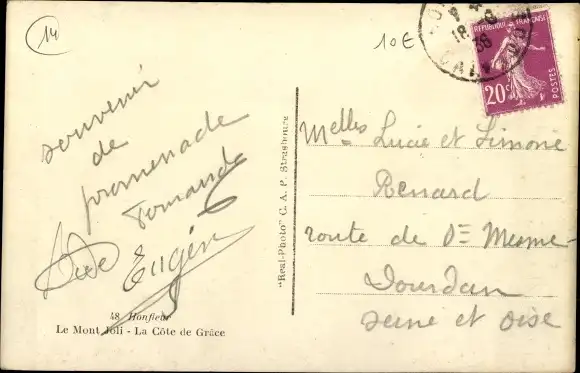 14
10€
18
36
CALVADOS
REPUBLIQUE FRANÇAISE
20c
POSTES
souvenir
de
promenade
Eugène
48 Honfleur
Le Mont Joli - La Côte de Grâce
"Real-Photo" C. A. P. Strasbourg
Melles Lucie et Simone
Renard
route de Ste Mesme
Dourdan
Seine et Oise